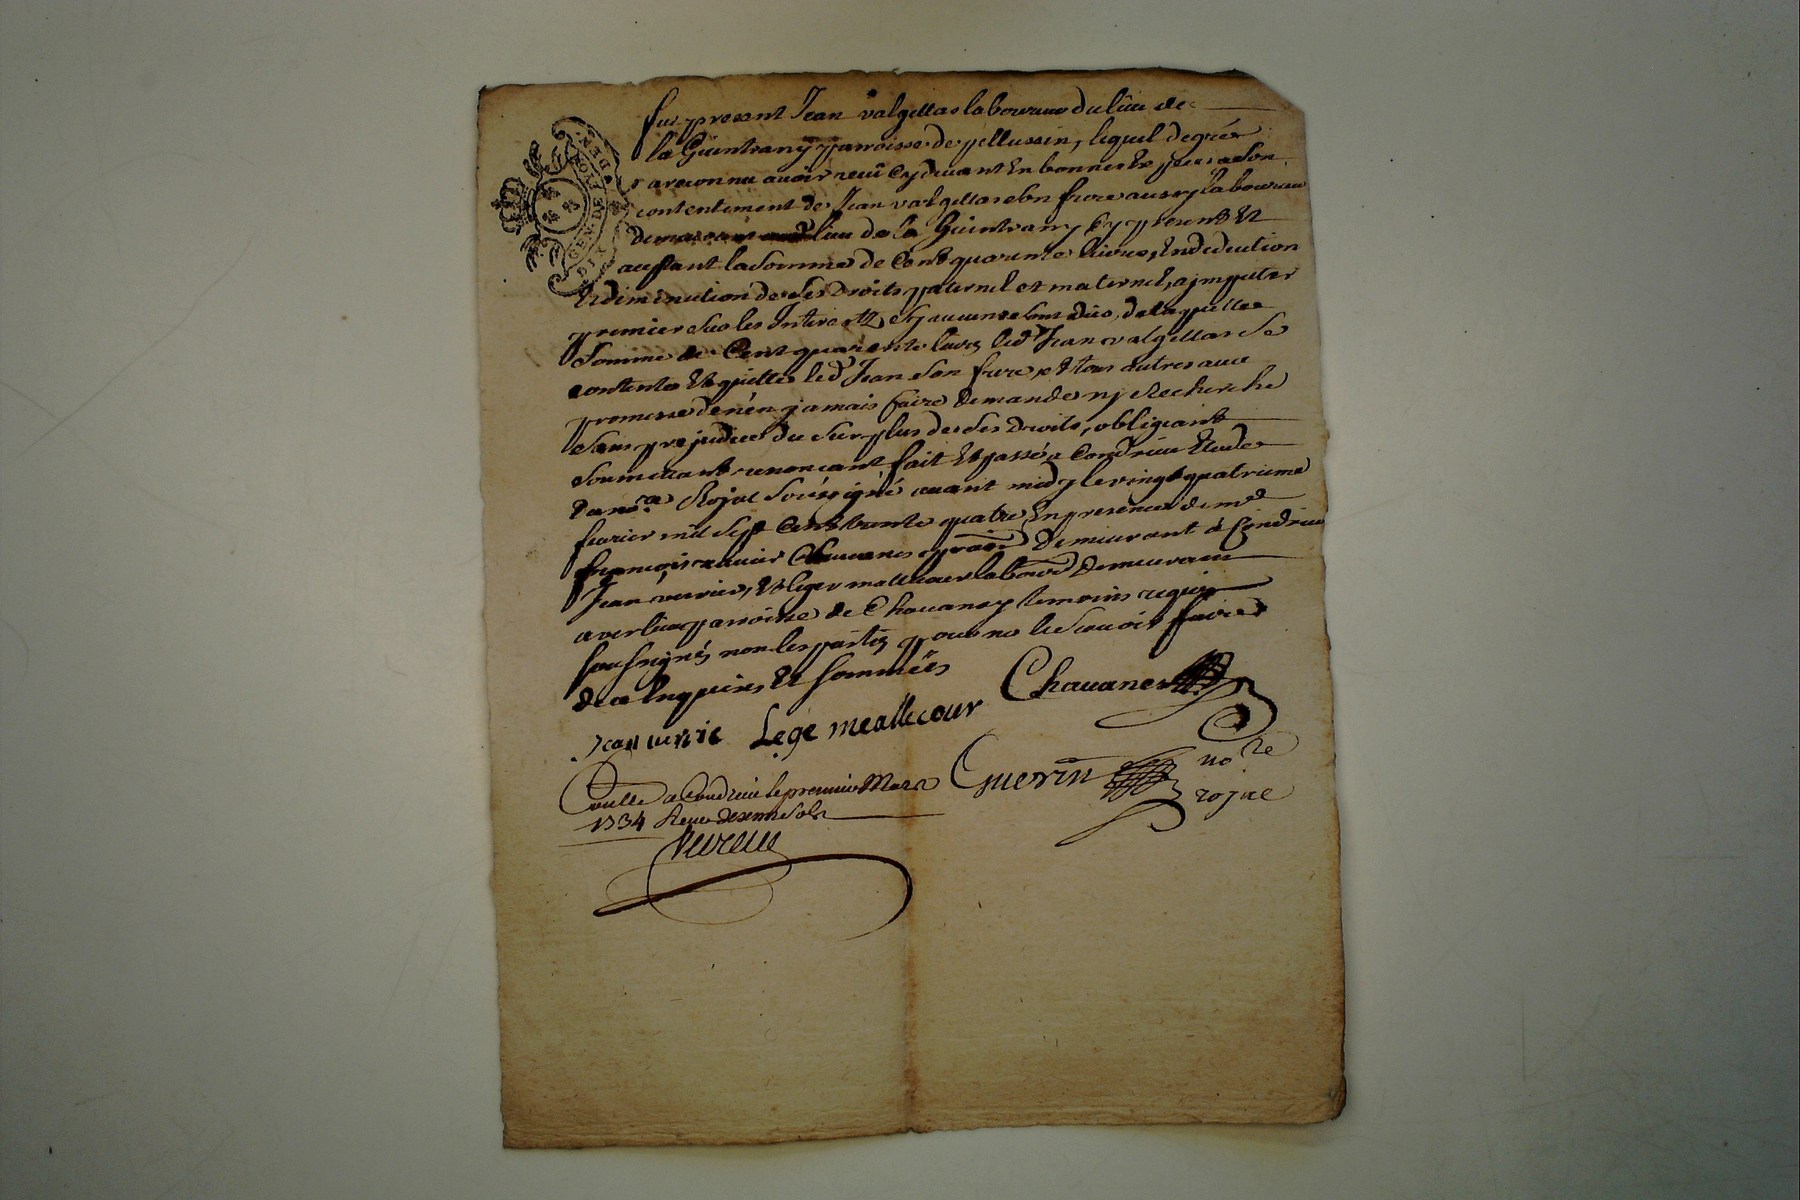 fut present Jean valgellas laboureur du lieu de
la Guintrany parroisse de pellussin, lequel de gré
a reconnu avoir receu cy devant en bonnes espèces a son
contentement de Jean valgellas son frere aussy laboureur
lieu de la Guintrany cy present et
acceptant la somme de Cent quarente livres, en deduction
et diminution de ses Droits paternel et maternel, a imputer
premier sur les Interetz sy aucuns sont dûs, de laquelle
somme de Cent quarente livres led Jean valgellas se
contente et quitte led Jean son frere et tous autres avec
promesse de n'en jamais faire demande ny Recherche
sans prejudice du surplus de ses Droits, obligeant
soumettant renoncant fait et passé a Condrieu Etude
du nore Royal soussigné avant midy le vingt quatrieme
fevrier mil sept Cent trente quatre en presence de me
françois xavier Chavanes demeurant à Condrieu
Jean verrier, et leger mallecour labour demeurant
a verlieu parroisse de Chavanay temoins requis
soussignés non les parties pour ne le scavoir faire
de ce enquises et sommées
Chavanes
Jean verrie Lege meallecour
Guerin nore
royal
Controllé a Condrieu le premier Mars
1734 Receu sols